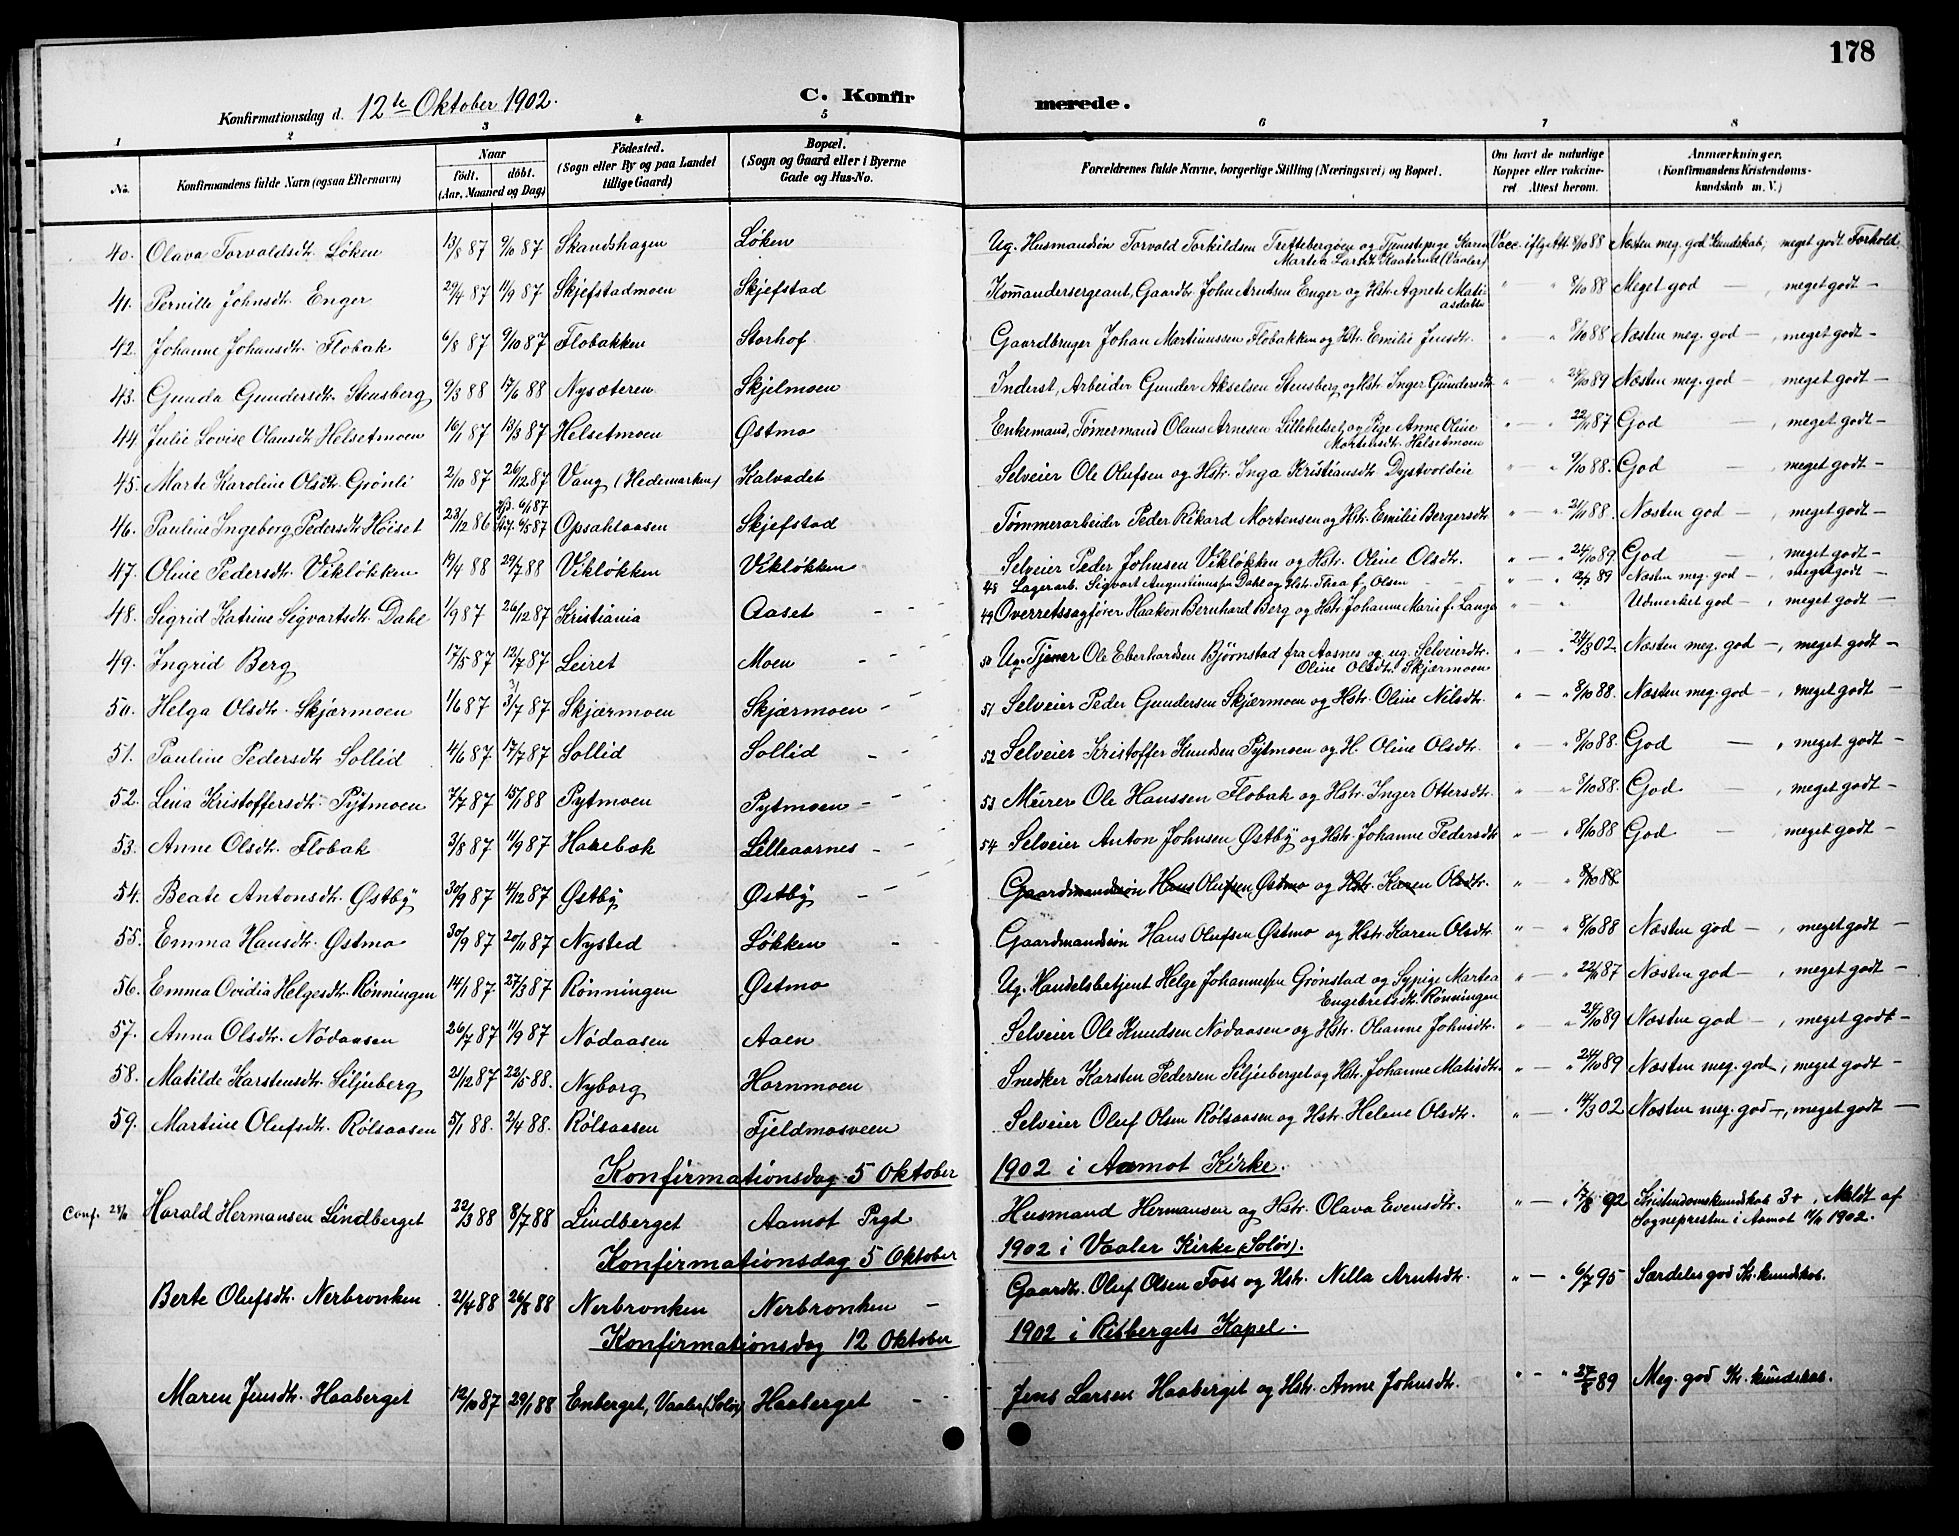 178
Konfirmationsdag d. 12te Oktober 1902. C. Konfirmerede.
1 2 3 4 5 6 7 8
No. Konfirmandens fulde Navn (ogsaa Efternavn) Naar födt. döbt. (Aar, Maaned og Dag) Födested. (Sogn eller By og paa Landet tillige Gaard) Bopæl. (Sogn og Gaard eller i Byerne Gade og Hus-No. Forældrenes fulde Navne, borgerlige Stilling (Næringsvei) og Bopæl. Om havt de naturlige Kopper eller vaccineret Attest herom. Anmærkninger. (Konfirmandens Kristendomskundskab m. V.)
40. Olava Torvaldsdtr. Löken 13/8 87 9/10 87 Skandshagen Löken Ug. Husmandsön Torvold Torkildsen Trettebergöen og Tjenestepige Karen Martea Larsdtr. Kaaterud (Vaaler) Vacc. iflg. Att. 8/10 88 Næsten meg. god Kundskab, meget godt Forhold.
41. Pernille Johnsdtr. Enger 29/4 87 11/9 87 Skjefstadmoen Skjefstad Kommandersergeant, Gaardbr. John Arntsen Enger og Hstr. Agnete Matiasdatter " — " 8/10 88 Meget god — , meget godt —
42. Johanne Johansdtr. Flobak 6/8 87 9/10 87 Flobakken Storhof Gaardbruger Johan Martinussen Flobakken og Hstr. Emilie Jensdtr. " — " 8/10 88 Næsten meg. god — , meget godt —
43. Gunda Gundersdtr. Stensberg 9/3 88 17/6 88 Nysæteren Skjelmoen Inderst, Arbeider Gunder Akselsen Stensberg og Hstr. Inger Gundersdtr. " — " 24/10 89 Næsten meg. god — , meget godt —
44. Julie Lovise Olausdtr. Helsetmoen 16/1 87 13/3 87 Helsetmoen Østmo Enkemand, Tömermand Olaus Arnesen Lillehelset, og Pige Anne Oline Mortensdtr. Helsetmoen " — " 22/11 87 God — , meget godt —
45. Marte Karoline Olsdtr. Grönli 2/10 87 26/12 87 Vang (Hedemarken) Kalvadet Selveier Ole Olufsen og Hstr. Inga Kristiansdtr. Dystvoldeie " — " 9/10 88. God — meget godt —
46. Pauline Ingeborg Pedersdtr. Höiset 23/12 86 Hjd. 6/1 87 6/5 87 Opsahlaasen Skjefstad Tömmerarbeider Peder Rikard Mortensen og Hstr. Emilie Bergersdtr. " — " 21/11 88. Næsten god — , meget godt —
47. Oline Pedersdtr. Viklökken 19/4 88 29/7 88 Viklökken Viklökken Selveier Peder Johnsen Viklökken og Hstr. Oline Olsdtr. " — " 24/10 89 God — , meget godt —
48. Sigrid Katrine Sigvartsdtr. Dahl 1/9 87 26/12 87 Kristiania Aaset 48 Lagerarb. Sigvart Augustinussen Dahl og Hstr. Thea f. Olsen " — " 12/7 89 Næsten meg. god — , meget godt —
49. Ingrid Berg 17/5 87 12/7 87 Leiret Moen 49 Overretssagförer Haaken Bernhard Berg og Hstr. Johanne Marie f. Lange " — " Udmerket god — , meget godt —
50. Helga Olsdtr. Skjærmoen 1/6 87 3/7 87 Skjærmoen Skjærmoen 50 Ug. Tjener Ole Eberhardsen Björnstad fra Aasnes og ug. Selveierdtr. Oline Olsdtr. Skjærmoen " — " 24/3 02 Næsten meg. god —, meget godt —
51. Pauline Pedersdtr. Sollid 4/6 87 17/7 87 Sollid Sollid 51 Selveier Peder Gundersen Skjærmoen og Hstr. Oline Nilsdtr. " — " 8/10 88. Næsten meg. god —, meget godt —
52. Lina Kristoffersdtr. Pytmoen 7/7 87 15/1 88 Pytmoen Pytmoen 52 Selveier Kristoffer Knudsen Pytmoen og H. Oline Olsdtr. " — " 8/10 88. God — , meget godt —
53. Anne Olsdtr. Flobak 3/8 87 11/9 87 Harebak Lilleaarnes 53 Murer Ole Hanssen Flobak og Hstr. Inger Ottersdtr. " — " 8/10 88. God — , meget godt —
54. Beate Antonsdtr. Østby 30/9 87 4/12 87 Østby Østby 54 Selveier Anton Johnsen Østby og Hstr. Johanne Pedersdtr. " — " 8/10 88 God — , meget godt —
Gaardmandsön Hans Olufsen Østmo og Hstr. Karen Olsdtr. " — " 8/10 88
55. Emma Hansdtr. Østmo 30/9 87 20/11 87 Nysted Lökken Gaardmandsön Hans Olufsen Østmo og Hstr. Karen Olsdtr. " — " 8/10 88 Næsten god — , meget godt —
56. Emma Ovidia Helgesdtr. Rönningen 14/1 87 27/3 87 Rönningen Østmo Ug. Handelsbetjent Helge Johannessen Grönstad og Sypige Martea Engebretsdtr. Rönningen " — " 22/11 87 Næsten god — , meget godt —
57. Anna Olsdtr. Nödaasen 26/7 87 11/9 87 Nödaasen Aaen Selveier Ole Knudsen Nödaasen og Hstr. Olianne Johnsdtr. " — " 24/10 89 Næsten god — , meget godt —
58. Matilde Karstensdtr. Siljuberg 21/12 87 22/5 88. Nyborg Hornmoen Snedker Karsten Pedersen Siljuberget og Hstr. Johanne Matisdtr. " — " 24/10 89 Næsten meg. god , meget godt —
59. Martine Olufsdtr. Rölsaasen 5/1 88. 2/4 88. Rölsaasen Fjeldmosveen Selveier Oluf Olsen Rölsaasen og Hstr. Helene Olsdtr. " — " 14/3 02 Næsten meg. god —, meget godt —
Konfirmationsdag 5 Oktober 1902 i Aamot Kirke.
Conf. Harald Hermansen Lindberget 22/3 88 8/7 88 Lindberget Aamot Prgd Husmand Hermansen og Hstr. Olava Evensdtr. " — " 17/8 92 Kristendomskundskab 3+, Meldt af Sognepresten i Aamot 11/11 1902.
Konfirmationsdag 5 Oktober 1902 i Vaaler Kirke (Solör).
Berte Olufsdtr. Nerbronken 2/4 88 26/8 88 Nerbronken Nerbronken — Gaardbr. Oluf Olsen Foss og Hstr. Nilla Arntsdtr. " — " 6/7 95 Særdeles god Kr. kundskab.
Konfirmationsdag 12 Oktober 1902 i Risbergets Kapel.
Maren Jensdtr. Haaberget 12/10 87 29/1 88 Enberget, Vaaler (Solör) Haaberget Jens Larsen Haaberget og Hstr. Anne Johnsdtr. " — " 27/8 89 Meg. god Kr. kundskab.